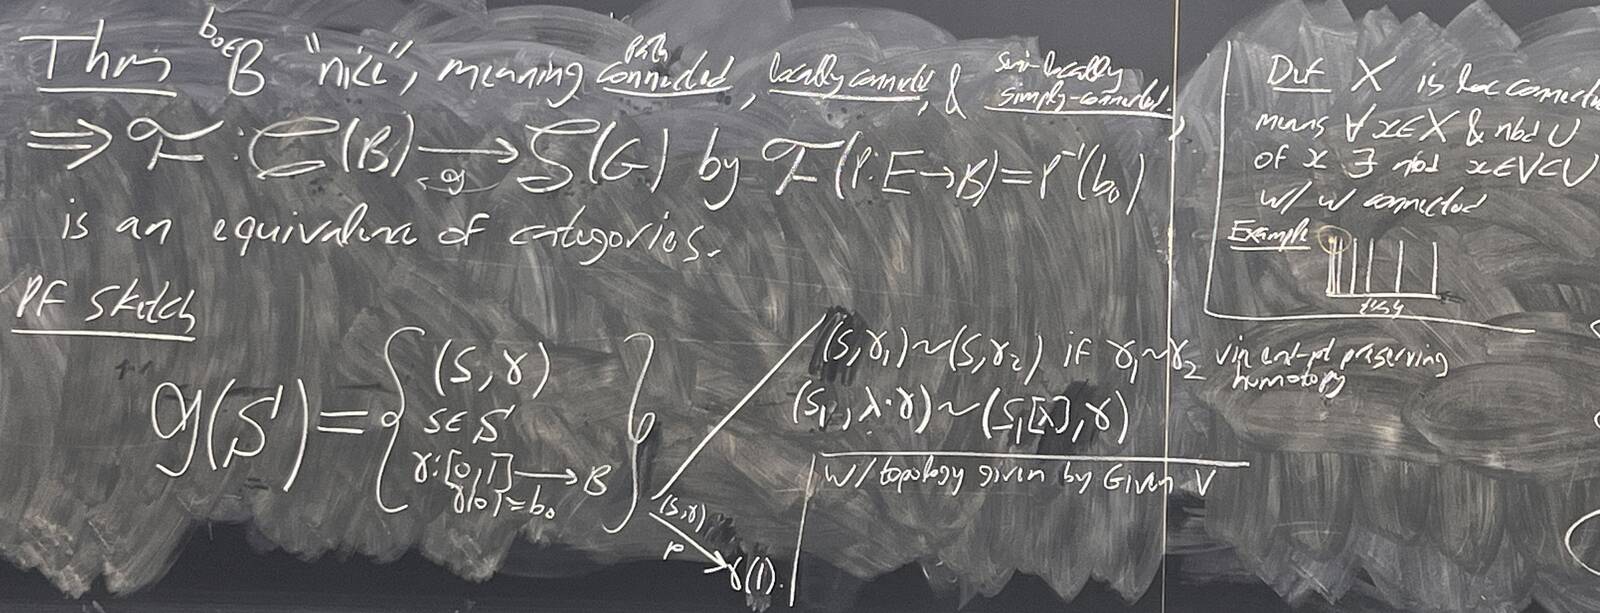 Thm b₀∈B "nice", meaning path connected, locally connected, & semi-locally simply-connected,
⟹ 𝓕 : 𝓒(B) ⟶ 𝓢(G) by 𝓕(p: E→B) = p⁻¹(b₀)
𝒢
is an equivalence of categories.
Pf Sketch
𝒢(S) = { (s, γ)
s∈S
γ: [0,1] ⟶ B
γ(0) = b₀ }
(s,γ)
p
γ(1).
(s,γ₁) ~ (s,γ₂) if γ₁ ~ γ₂ via end-pt preserving homotopy
(s, λ·γ) ~ (s[λ], γ)
w/ topology given by Given V
Def X is loc connected
means ∀ x∈X & nbd U
of x ∃ nbd x∈V⊂U
w/ w connected
Example